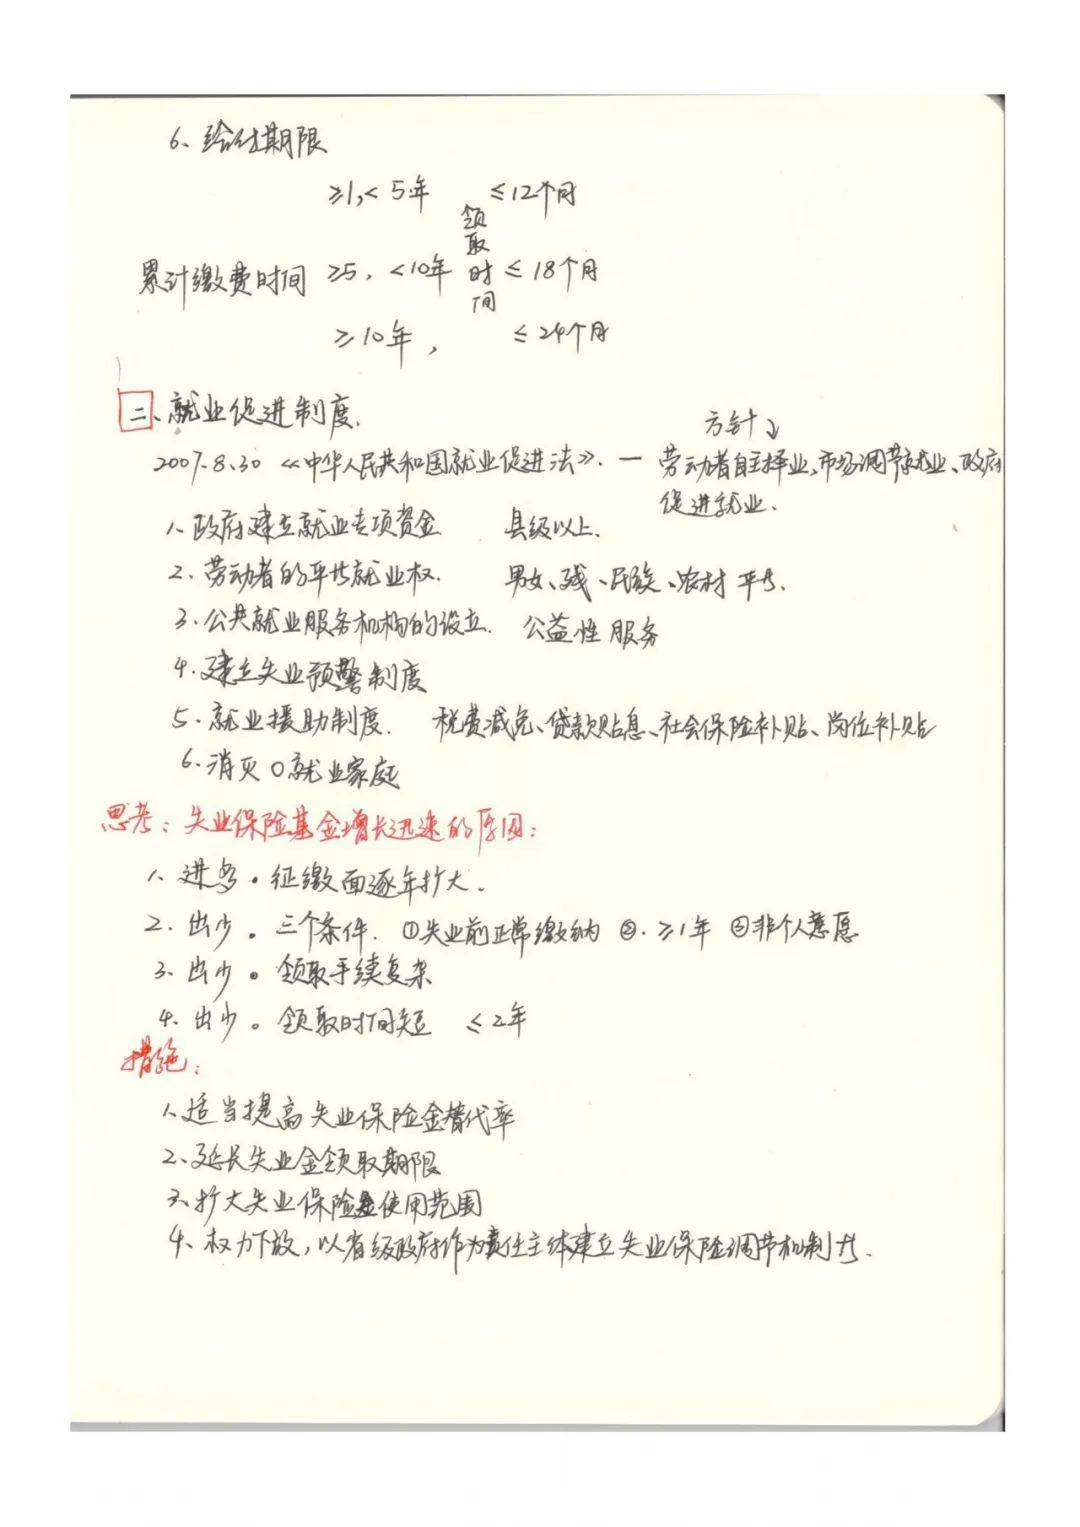 6、给付期限
≥1,< 5年 ≤12个月
累计缴费时间 ≥5，<10年 领取时间 ≤ 18个月
≥10年， ≤24个月
二、就业促进制度.
方针↓
2007.8.30 《中华人民共和国就业促进法》. — 劳动者自主择业、市场调节就业、政府
促进就业.
1、政府建立就业专项资金 县级以上.
2、劳动者的平等就业权. 男女、残、民族、农村 平等.
3、公共就业服务机构的设立. 公益性服务
4、建立失业预警制度
5、就业援助制度. 税费减免、贷款贴息、社会保险补贴、岗位补贴
6、消灭0就业家庭
思考：失业保险基金增长迅速的原因：
1、进多。征缴面逐年扩大.
2. 出少。三个条件. ①失业前正常缴纳 ②.≥1年 ③非个人意愿
3、出少。领取手续复杂
4、出少。领取时间短 ≤2年
措施：
1、适当提高失业保险金替代率
2、延长失业金领取期限
3、扩大失业保险金使用范围
4、权力下放，以省级政府作为责任主体建立失业保险调节机制等.